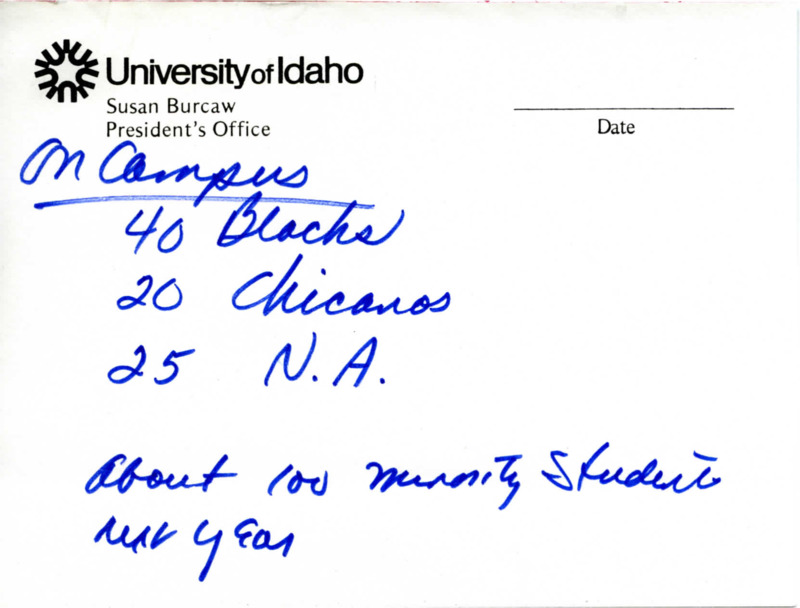 University of Idaho
Susan Burcaw
President's Office
Date
On Campus
40 Blacks
20 Chicanos
25 N.A.
About 100 minority Students
next year